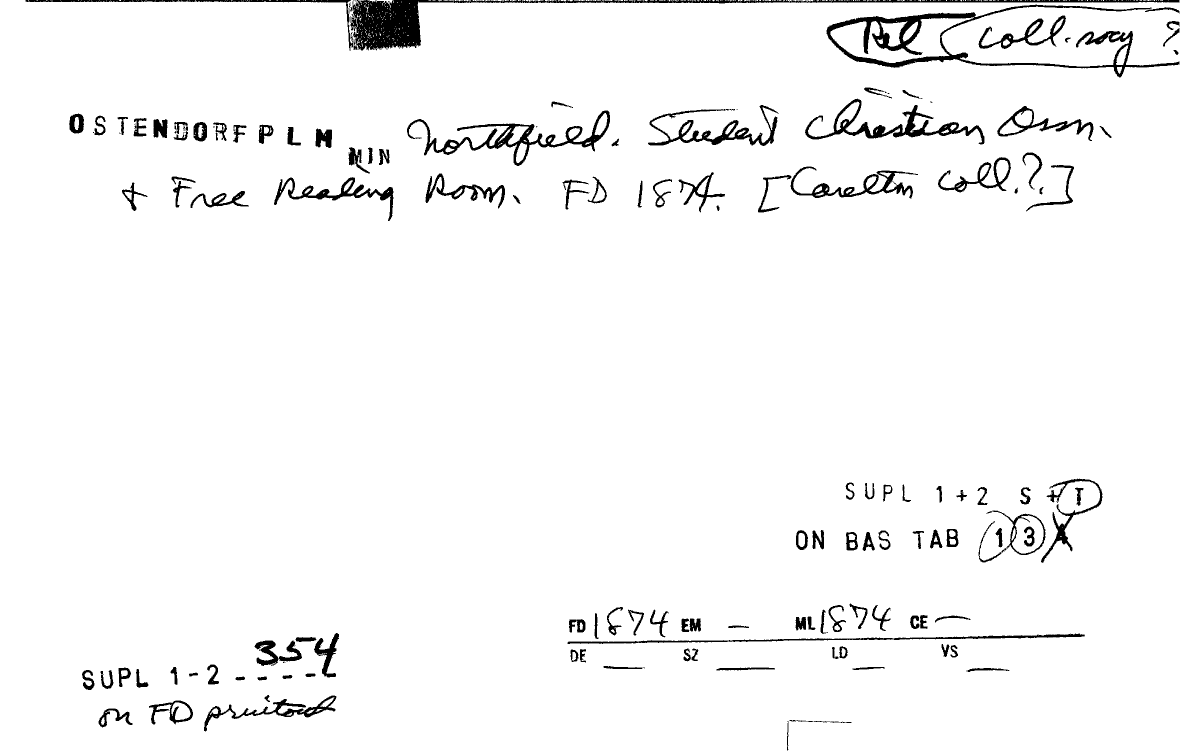 Rel coll. socy ?
OSTENDORFPLM MIN Northfield. Student Christian Assn.
+ Free Reading Room. FD 1874. [Carelton coll.?.]
SUPL 1+2 S+T
ON BAS TAB 1 3 4
FD 1874 EM — ML 1874 CE —
DE __ SZ __ LD __ VS __
SUPL 1-2 ----- 354
on FD printout